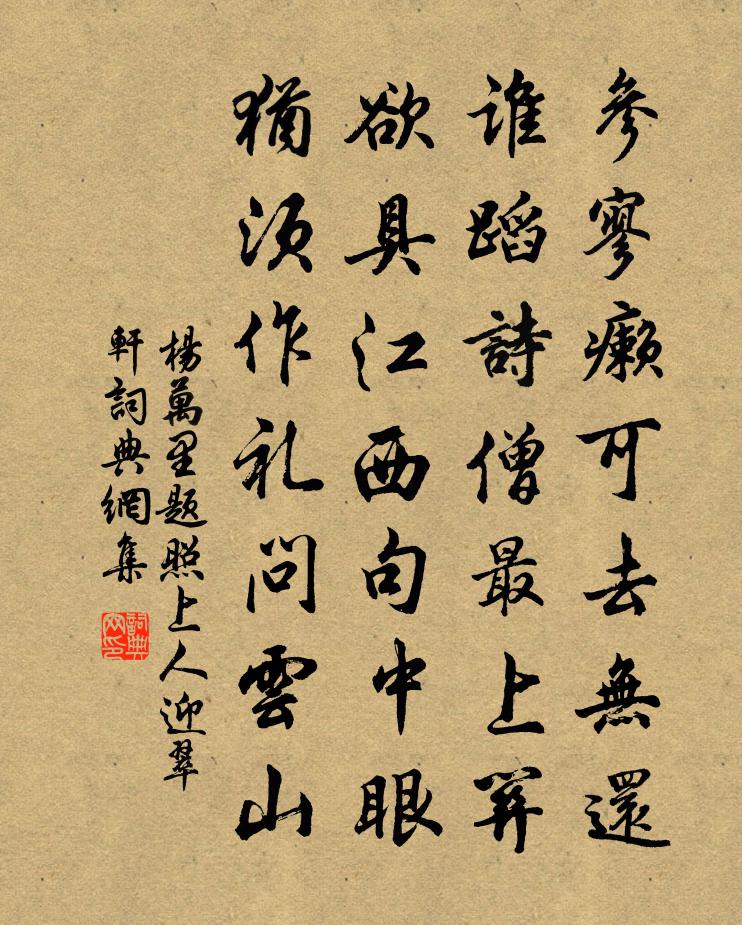 參寥癩可去無還
誰蹈詩僧最上關
欲具江西句中眼
猶須作礼問雲山
楊萬里題照上人迎翠
軒詞典網集
詞典网印